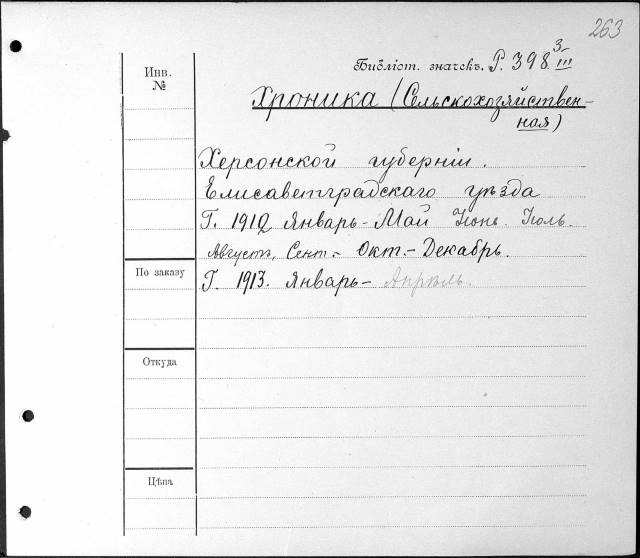 263
Библіот. значекъ. Р. 398 3/III
Инв.
№
Хроника (Сельскохозяйствен-
ная)
Херсонской губерніи.
Елисаветградскаго уѣзда
Г. 1912 Январь-Май Іюнь. Іюль.
Августъ, Сент.- Окт.-Декабрь.
По заказу
Г. 1913. Январь- Апрѣль.
Откуда
Цѣна